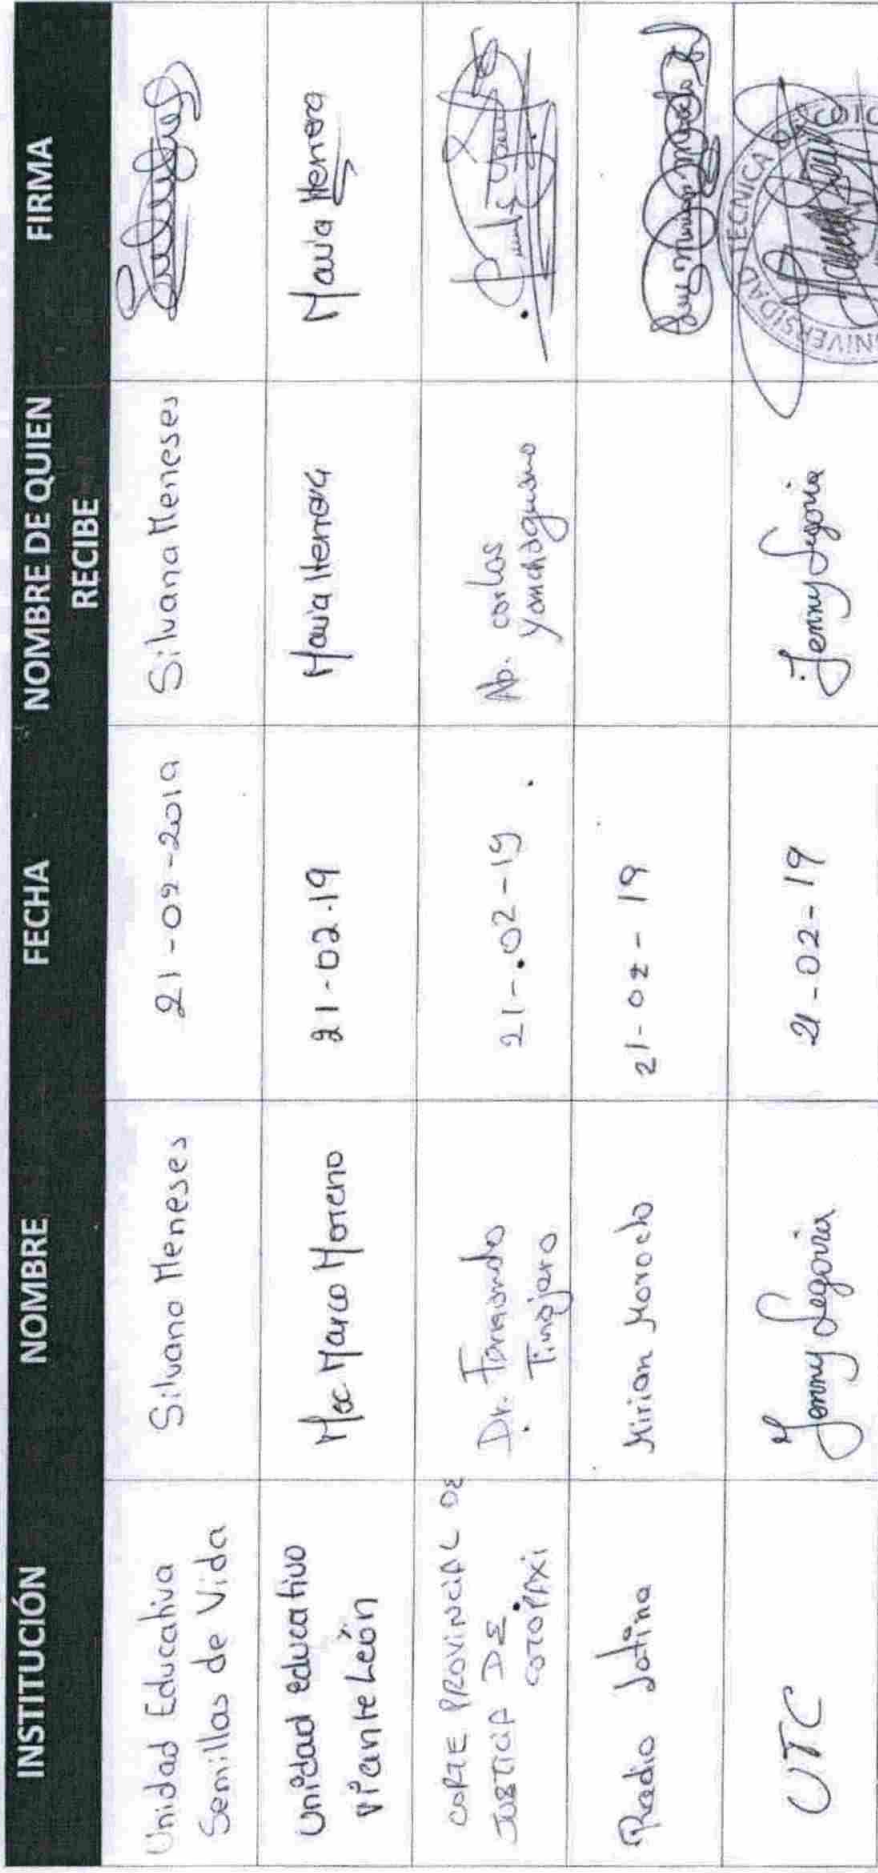 INSTITUCIÓN NOMBRE FECHA NOMBRE DE QUIEN RECIBE FIRMA
Unidad Educativa
Semillas de Vida
Silvana Meneses
21-02-2019
Silvana Meneses
Unidad Educativa
Vicente León
Msc. Marco Moreno
21-02-19
Maria Herrera
Maria Herrera
CORTE PROVINCIAL DE
JUSTICIA DE
COTOPAXI
Dr. Fernando
Tinajero
21-02-19
Ab. Carlos
Yanchaguano
Radio Latina
Mirian Morocho
21-02-19
UTC
Jenny Segovia
21-02-19
Jenny Segovia
UNIVERSIDAD TECNICA